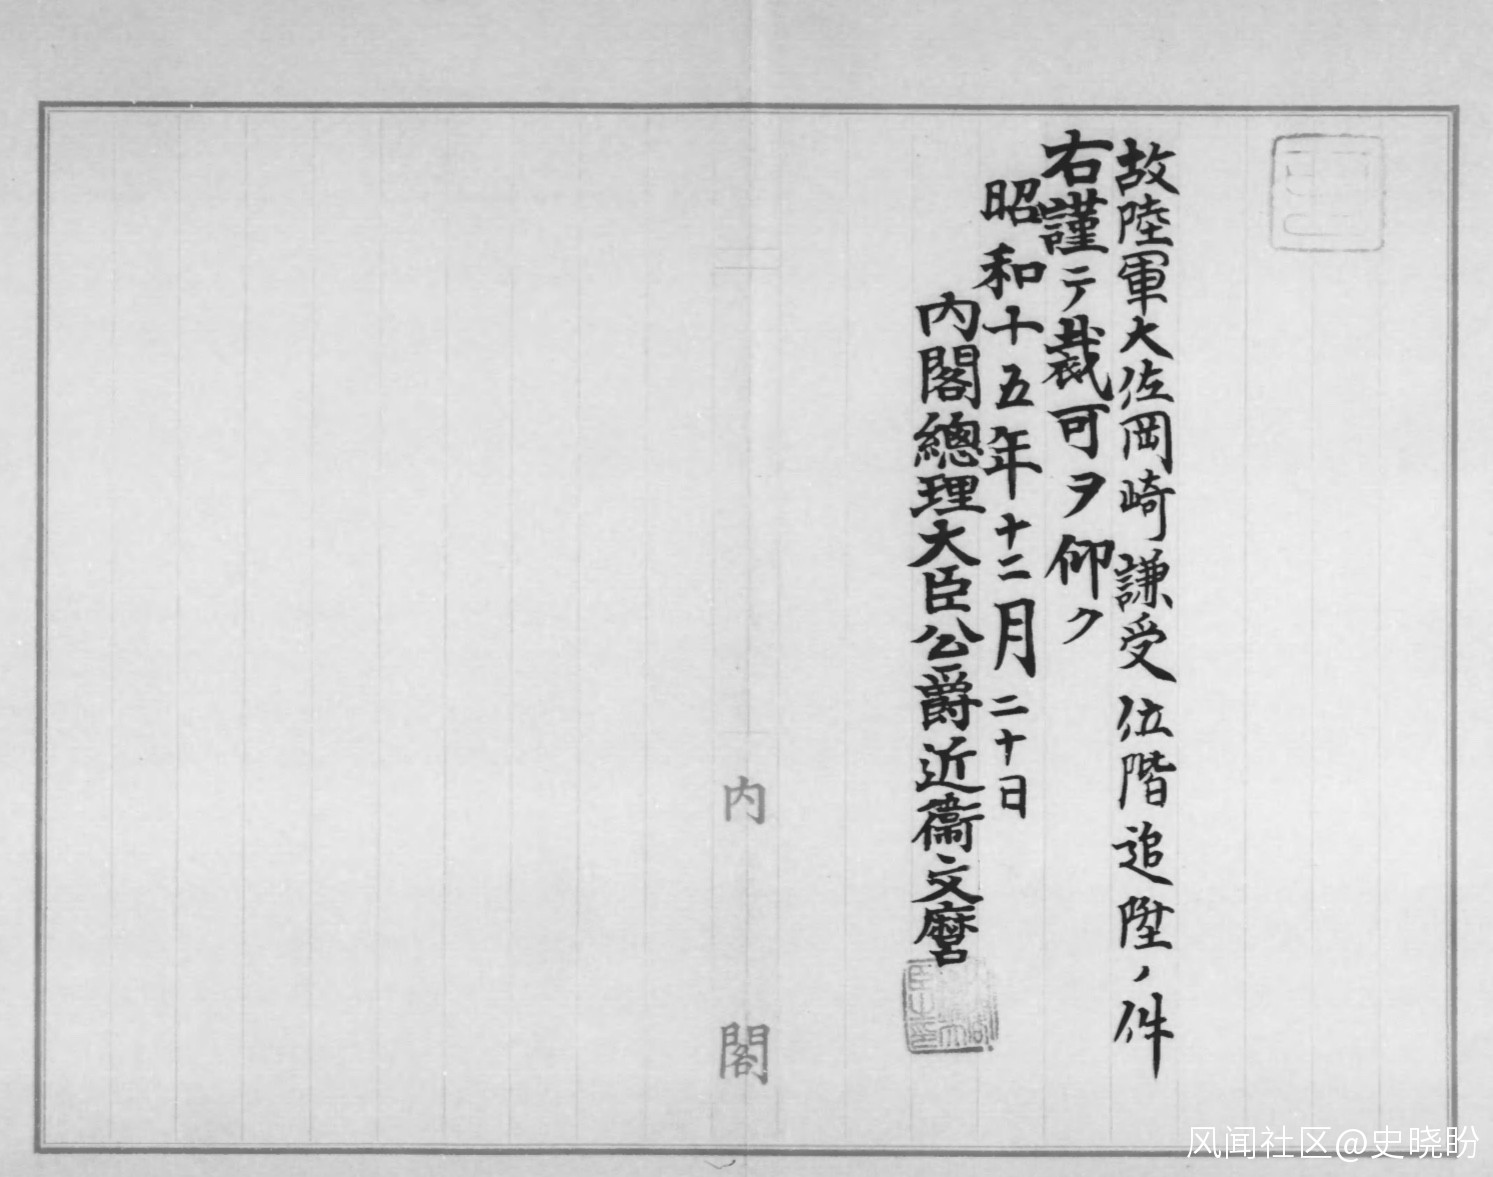 故陸軍大佐岡崎謙受位階追陞ノ件
右謹テ裁可ヲ仰ク
昭和十五年十二月二十日
內閣總理大臣公爵近衞文麿
内閣
风闻社区@史晓盼